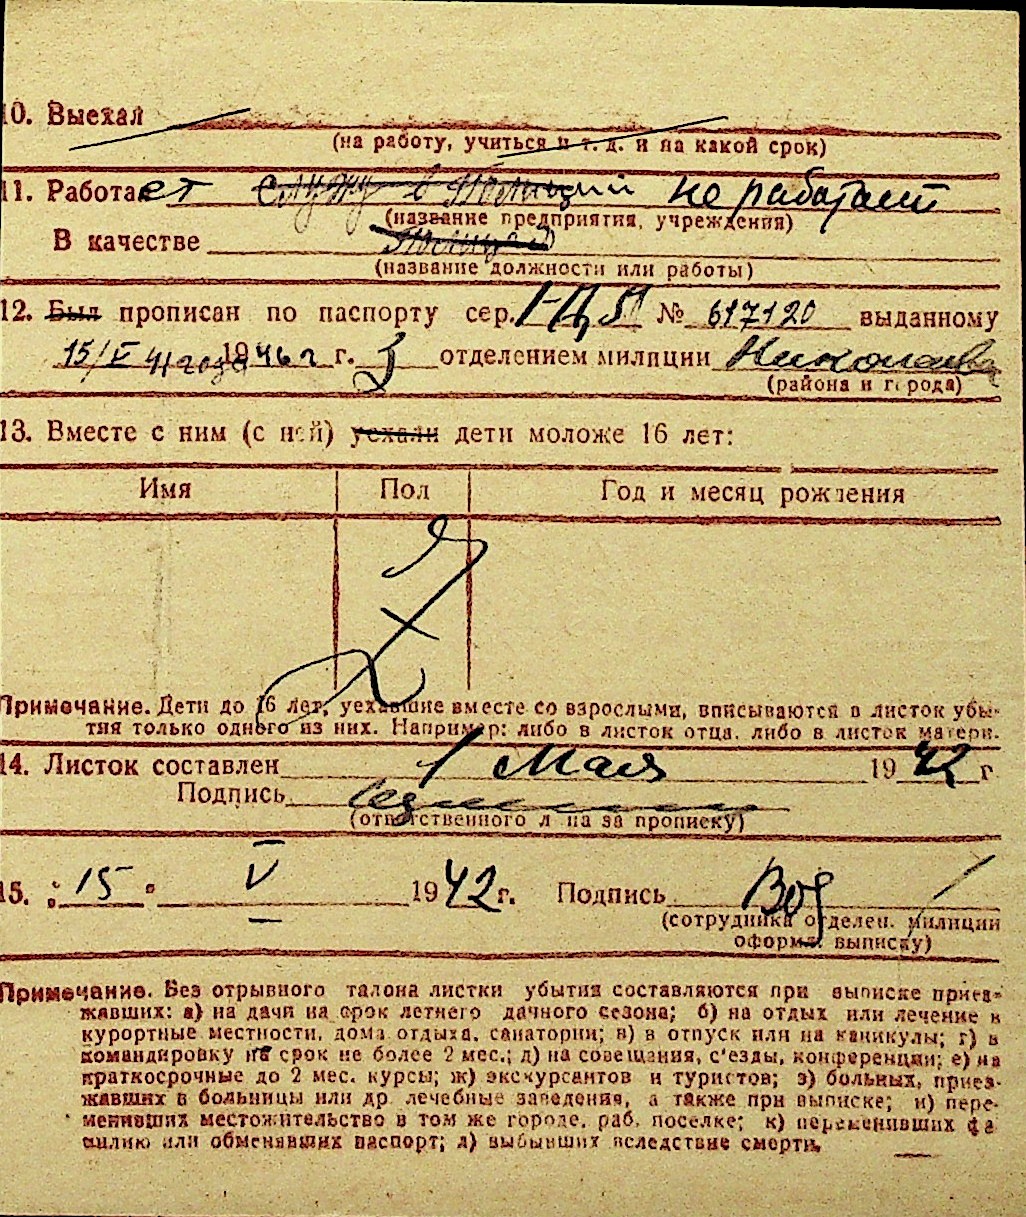 10. Выехал
(на работу, учиться и т. д. и на какой срок)
11. Работает служу в Полиции не работает
(название предприятия, учреждения)
В качестве
(название должности или работы)
12. Был прописан по паспорту сер. № 617120 выданному
15/V 41 года 1946 г г. 3 отделением милиции Николаева
(района и города)
13. Вместе с ним (с ней) уехали дети моложе 16 лет:
Имя Пол Год и месяц рождения
Примечание. Дети до 16 лет, уехавшие вместе со взрослыми, вписываются в листок убы-
тия только одного из них. Например: либо в листок отца, либо в листок матери.
14. Листок составлен 1 Мая 1942 г
Подпись
(ответственного лица за прописку)
15. „15“ V 1942 г. Подпись
(сотрудника отделен. милиции
оформл. выписку)
Примечание. Без отрывного талона листки убытия составляются при выписке приез-
жавших: а) на дачи на срок летнего дачного сезона; б) на отдых или лечение в
курортные местности, дома отдыха, санатории; в) в отпуск или на каникулы; г) в
командировку на срок не более 2 мес.; д) на совещания, с'езды, конференции; е) на
краткосрочные до 2 мес. курсы; ж) экскурсантов и туристов; з) больных, приез-
жавших в больницы или др. лечебные заведения, а также при выписке; и) пере-
менивших местожительство в том же городе, раб. поселке; к) переменивших фа
милию или обменявших паспорт; л) выбывших вследствие смерти.